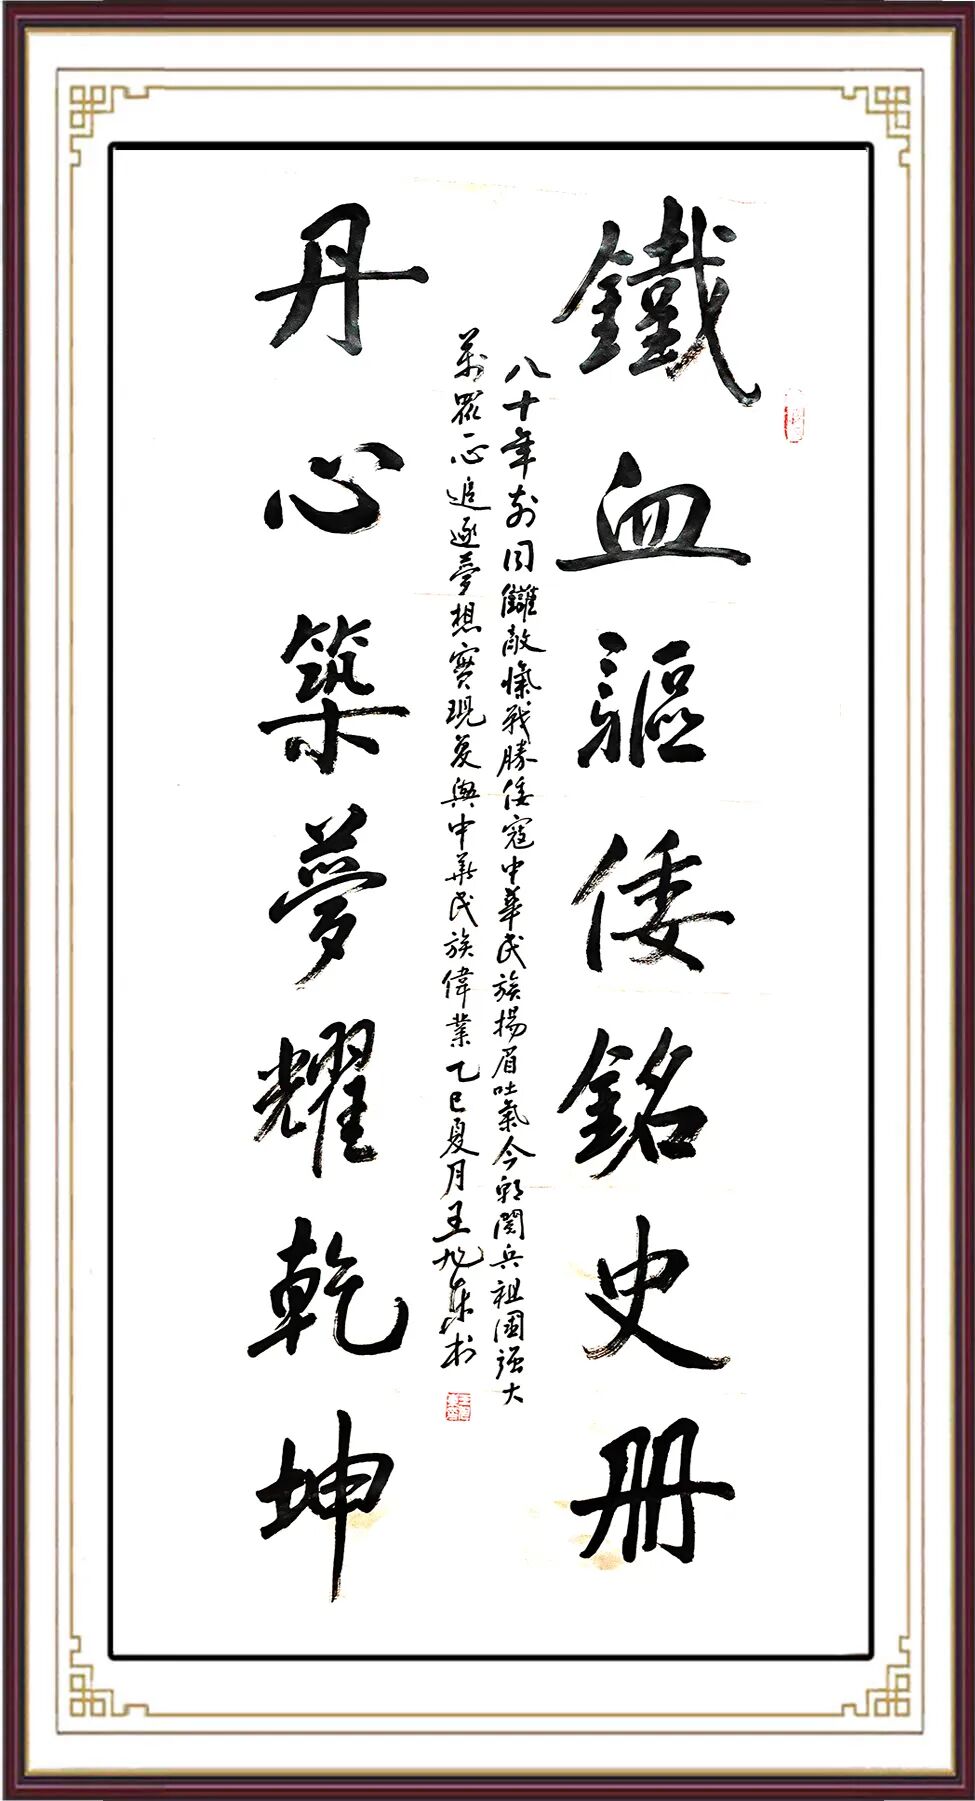 鐵血驅倭銘史冊
八十年前同讎敵愾戰勝倭寇中華民族揚眉吐氣今朝閱兵祖國強大
萬眾一心追逐夢想實現复興中華民族偉業乙巳夏月王旭东书
丹心築夢耀乾坤